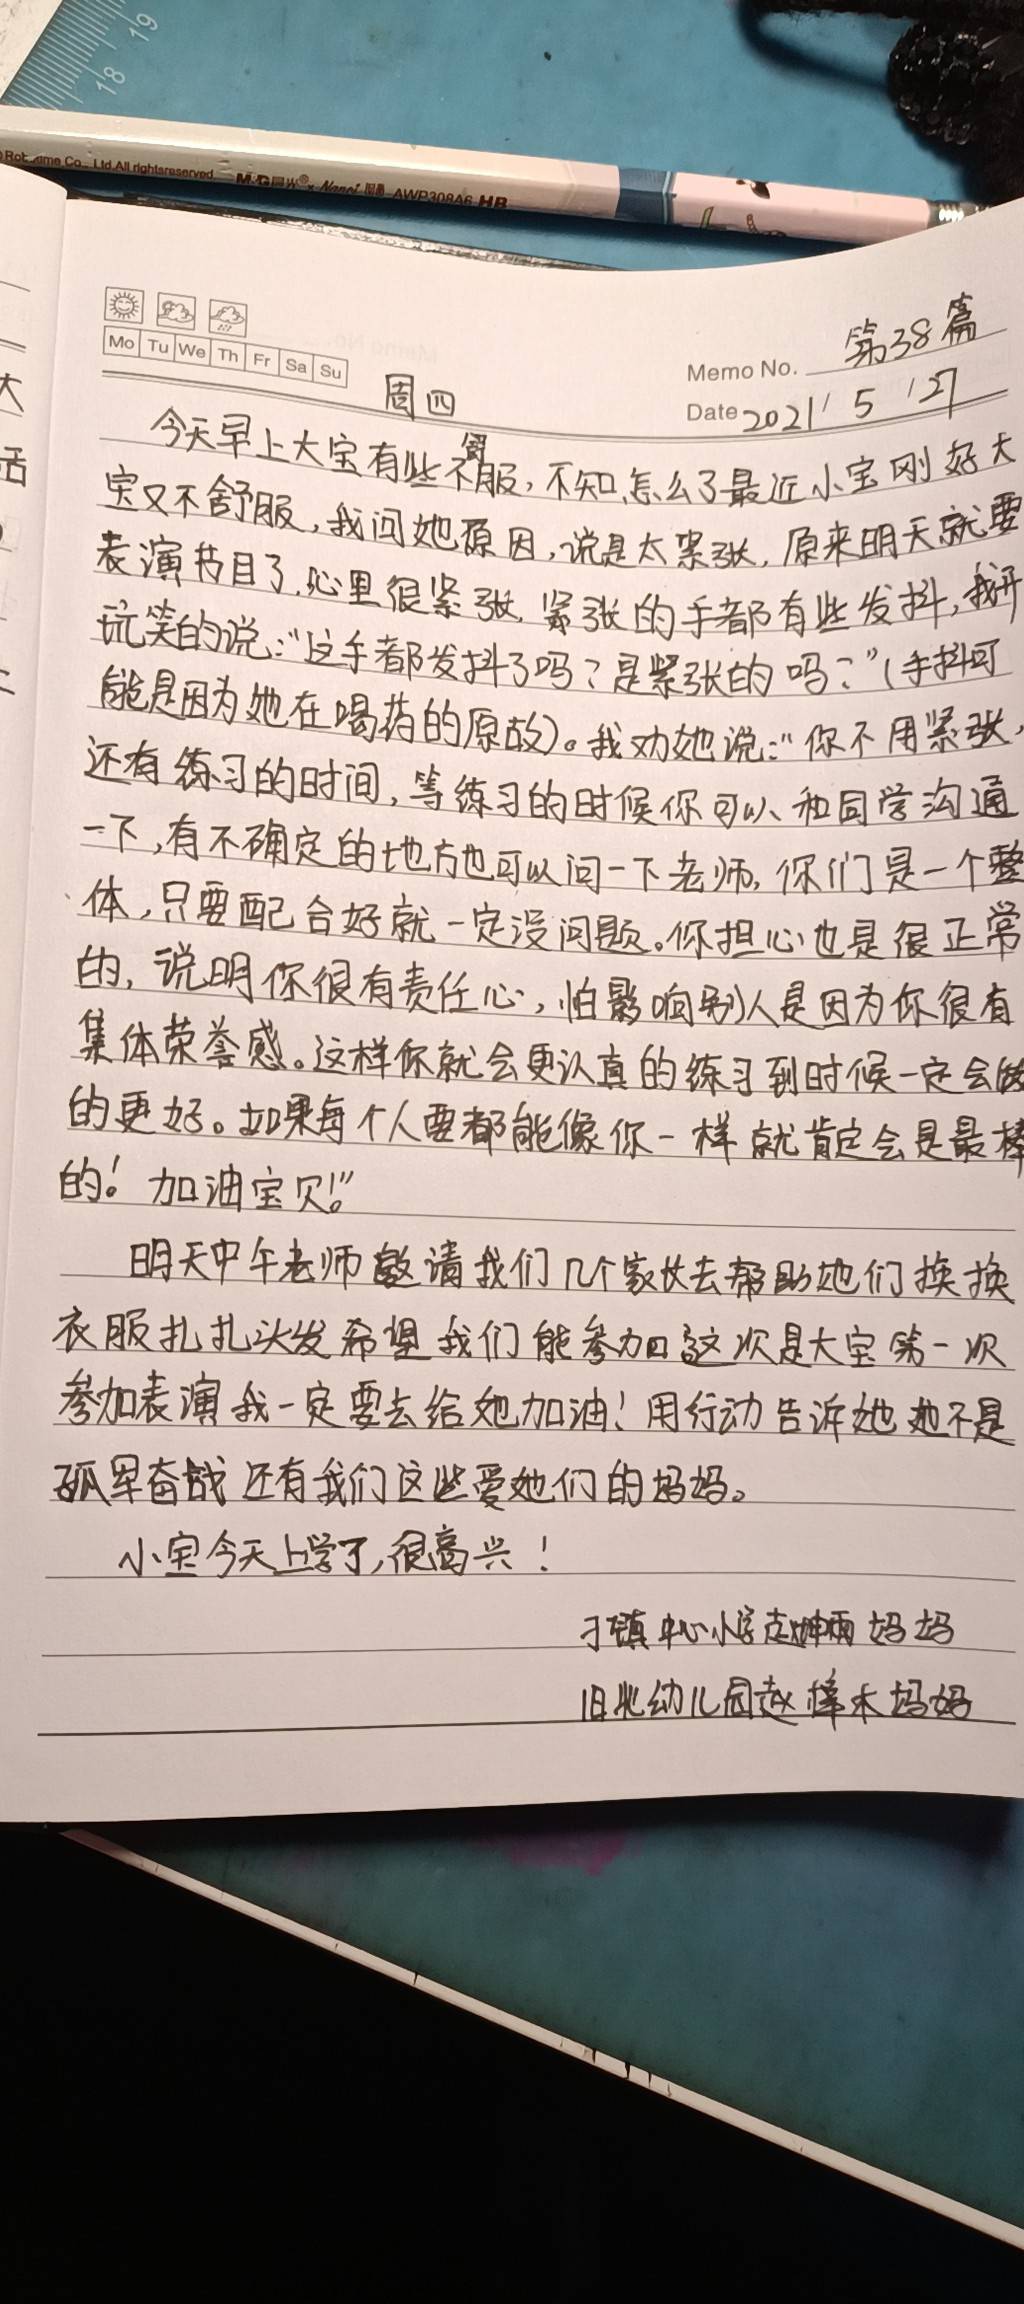 19
18
Co., Ltd.All rightsreserved.
M&G AWP308A6 HB
Mo Tu We Th Fr Sa Su
Memo No. 第38篇
周四
Date 2021/5/27
今天早上大宝有些不舒服，不知怎么了最近小宝刚好大
宝又不舒服，我问她原因，说是太紧张，原来明天就要
表演节目了，心里很紧张，紧张的手都有些发抖，我开
玩笑的说：“这手都发抖了吗？是紧张的吗？”（手抖可
能是因为她在喝药的原故）。我劝她说：“你不用紧张，
还有练习的时间，等练习的时候你可以和同学沟通
一下，有不确定的地方也可以问一下老师，你们是一个整
体，只要配合好就一定没问题。你担心也是很正常
的，说明你很有责任心，怕影响别人是因为你很有
集体荣誉感。这样你就会更认真的练习到时候一定会做
的更好。如果每个人要都能像你一样就肯定会是最棒
的！加油宝贝！”
明天中午老师邀请我们几个家长去帮助她们换换
衣服扎扎头发希望我们能参加这次是大宝第一次
参加表演我一定要去给她加油！用行动告诉她她不是
孤军奋战还有我们这些爱她们的妈妈。
小宝今天上学了，很高兴！
刁镇中心小学赵坤雨妈妈
旧北幼儿园赵梓木妈妈
大
活